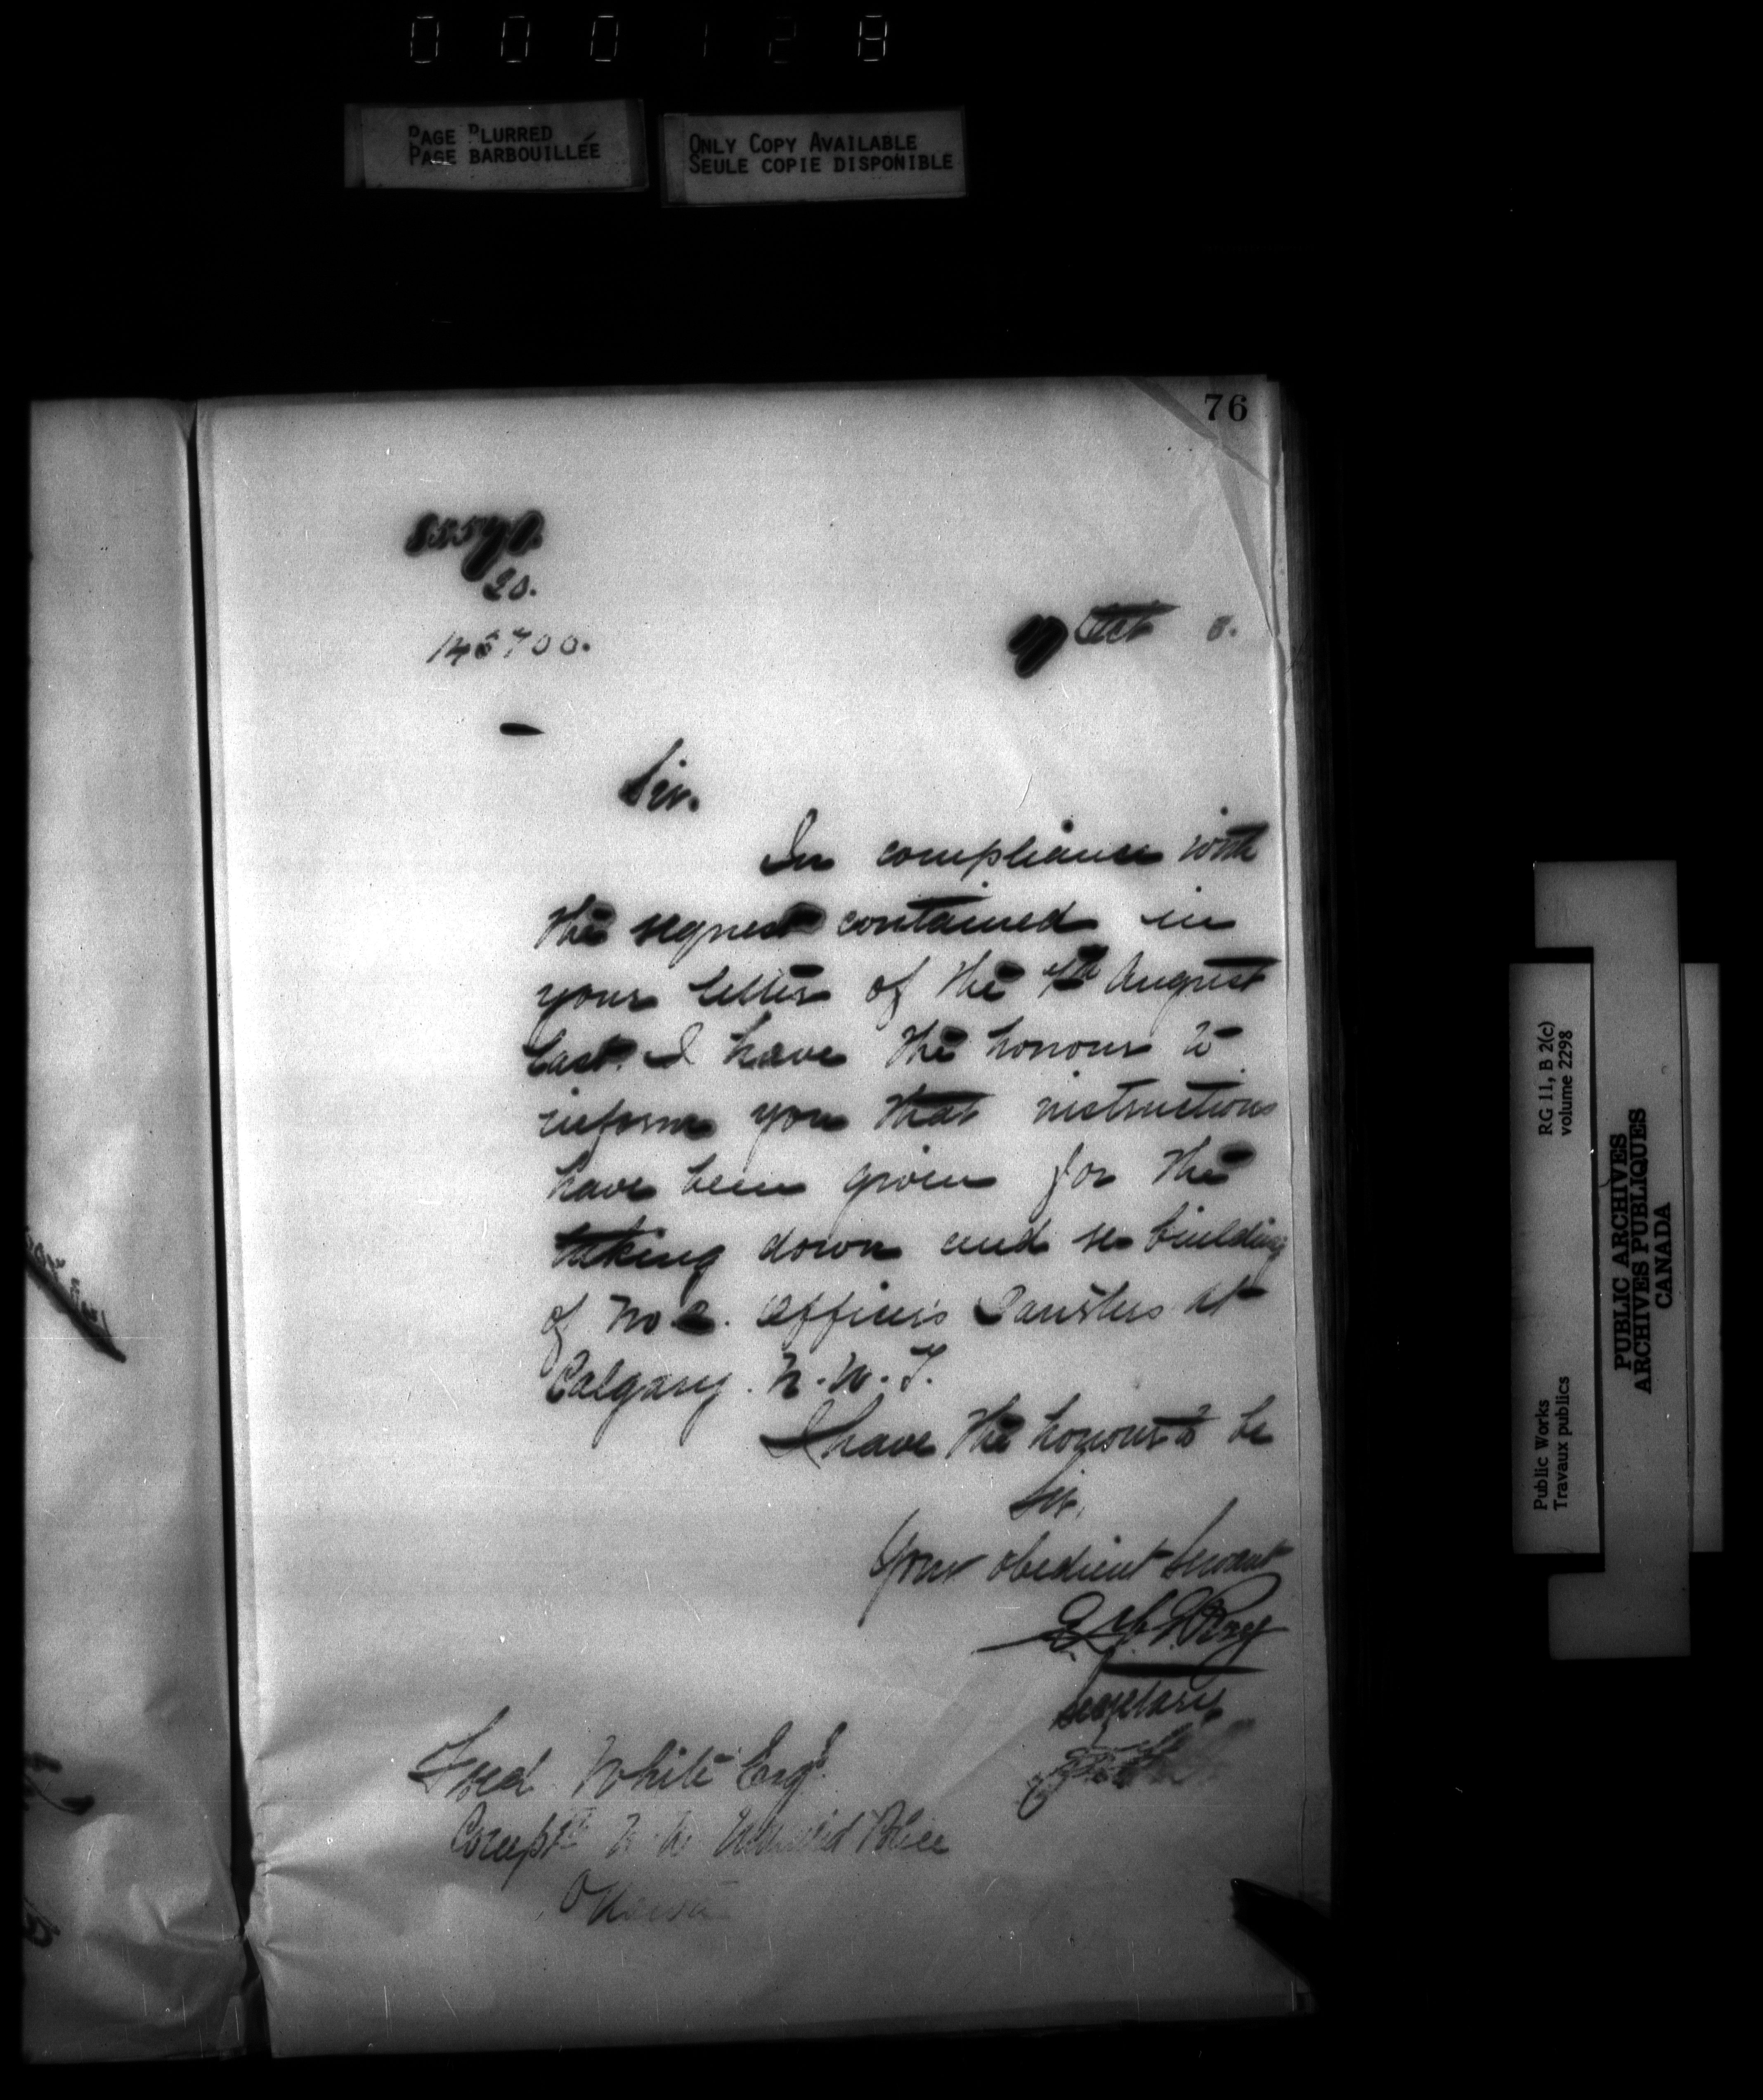 0 0 0 1 2 8
PAGE BLURRED
PAGE BARBOUILLÉE
ONLY COPY AVAILABLE
SEULE COPIE DISPONIBLE
76
20.
Oct
Sir.
In compliance with
the request contained in
your letter of the 7th August
last. I have the honour to
inform you that instructions
have been given for the
taking down and re building
of No 2. Officer's Quarters at
Calgary. N. W. T.
I have the honour to be
Sir,
Your obedient servant
Secretary
Fred White Esqr
Compt N. W. Mounted Police
Ottawa
Public Works
Travaux publics
RG 11, B 2(c)
volume 2298
PUBLIC ARCHIVES
ARCHIVES PUBLIQUES
CANADA